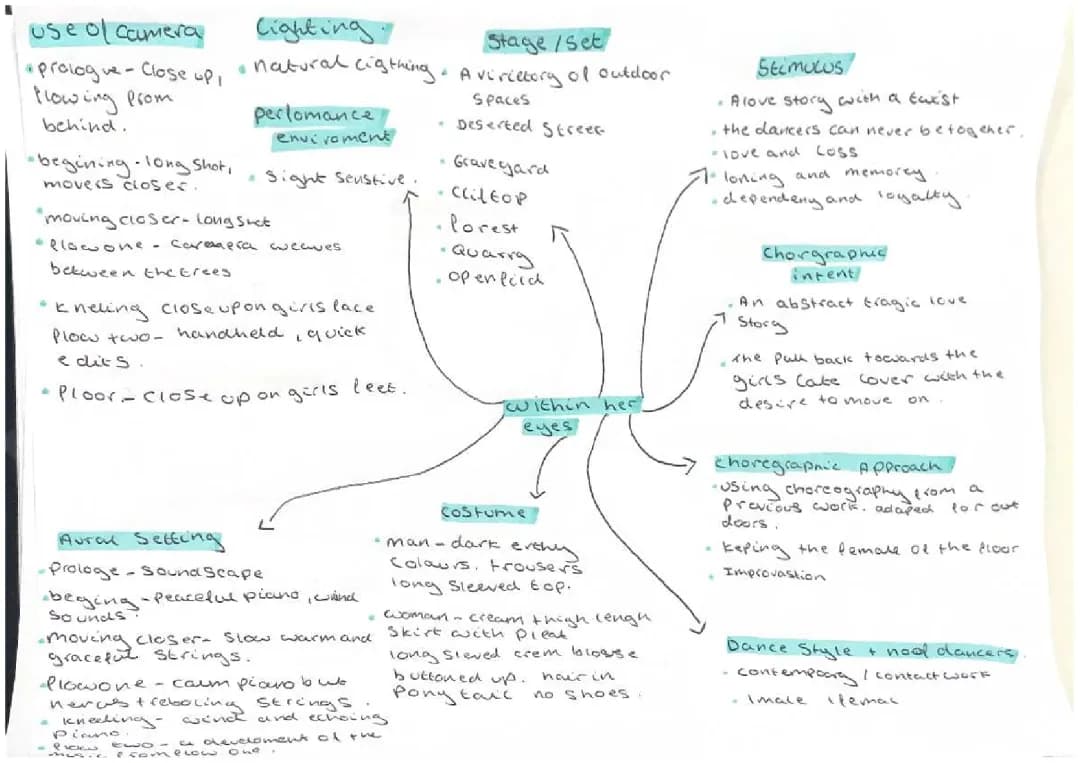 Use of camera
• prologue - Close up,
flowing from
behind.
• begining - long shot,
movers closer.
moving closer - long shot
• flow one - Caremera weaves
between the trees
• kneling close up on girls face
flow two - handheld, quick
edits.
• floor - close up on girls feet.
Lighting.
• natural ligthing
perfomance
enviroment
• Sight senstive.
Stage/Set
• A virietory of outdoor
spaces
• Deserted Street
• Graveyard
• Cliftop
• forest
• Quarry
• openfeild
Stimulus
• A love story with a twist
• the dancers can never be together.
• love and loss
• loning and memorey.
• dependeny and loyalty.
Chorgraphic
intent
• An abstract tragic love
Story
• The pull back towards the
girls late lover with the
desire to move on.
within her
eyes
Choregraphic Approach
• using choreography from a
previous work. adaped for out
doors.
• keping the female of the floor
• Improvastion
Dance Style + no of dancers.
- contempoary / contact work
• 1 male 1 femal
Costume
• man - dark erthy
colours. trousers
long sleeved top.
• woman - cream thigh lengh
skirt with pleat
long sleved crem blouse
buttoned up. hair in
Pony tail no shoes.
Aural Setting
• Prologe - soundscape
• beging - peaceful piano, wind
sounds.
• moving closer - slow warm and
graceful strings.
• flow one - calm piano but
nervus + strings.
• kneeling - wind and echoing
piano.
• flow two - a develoment of the
music from flow one.